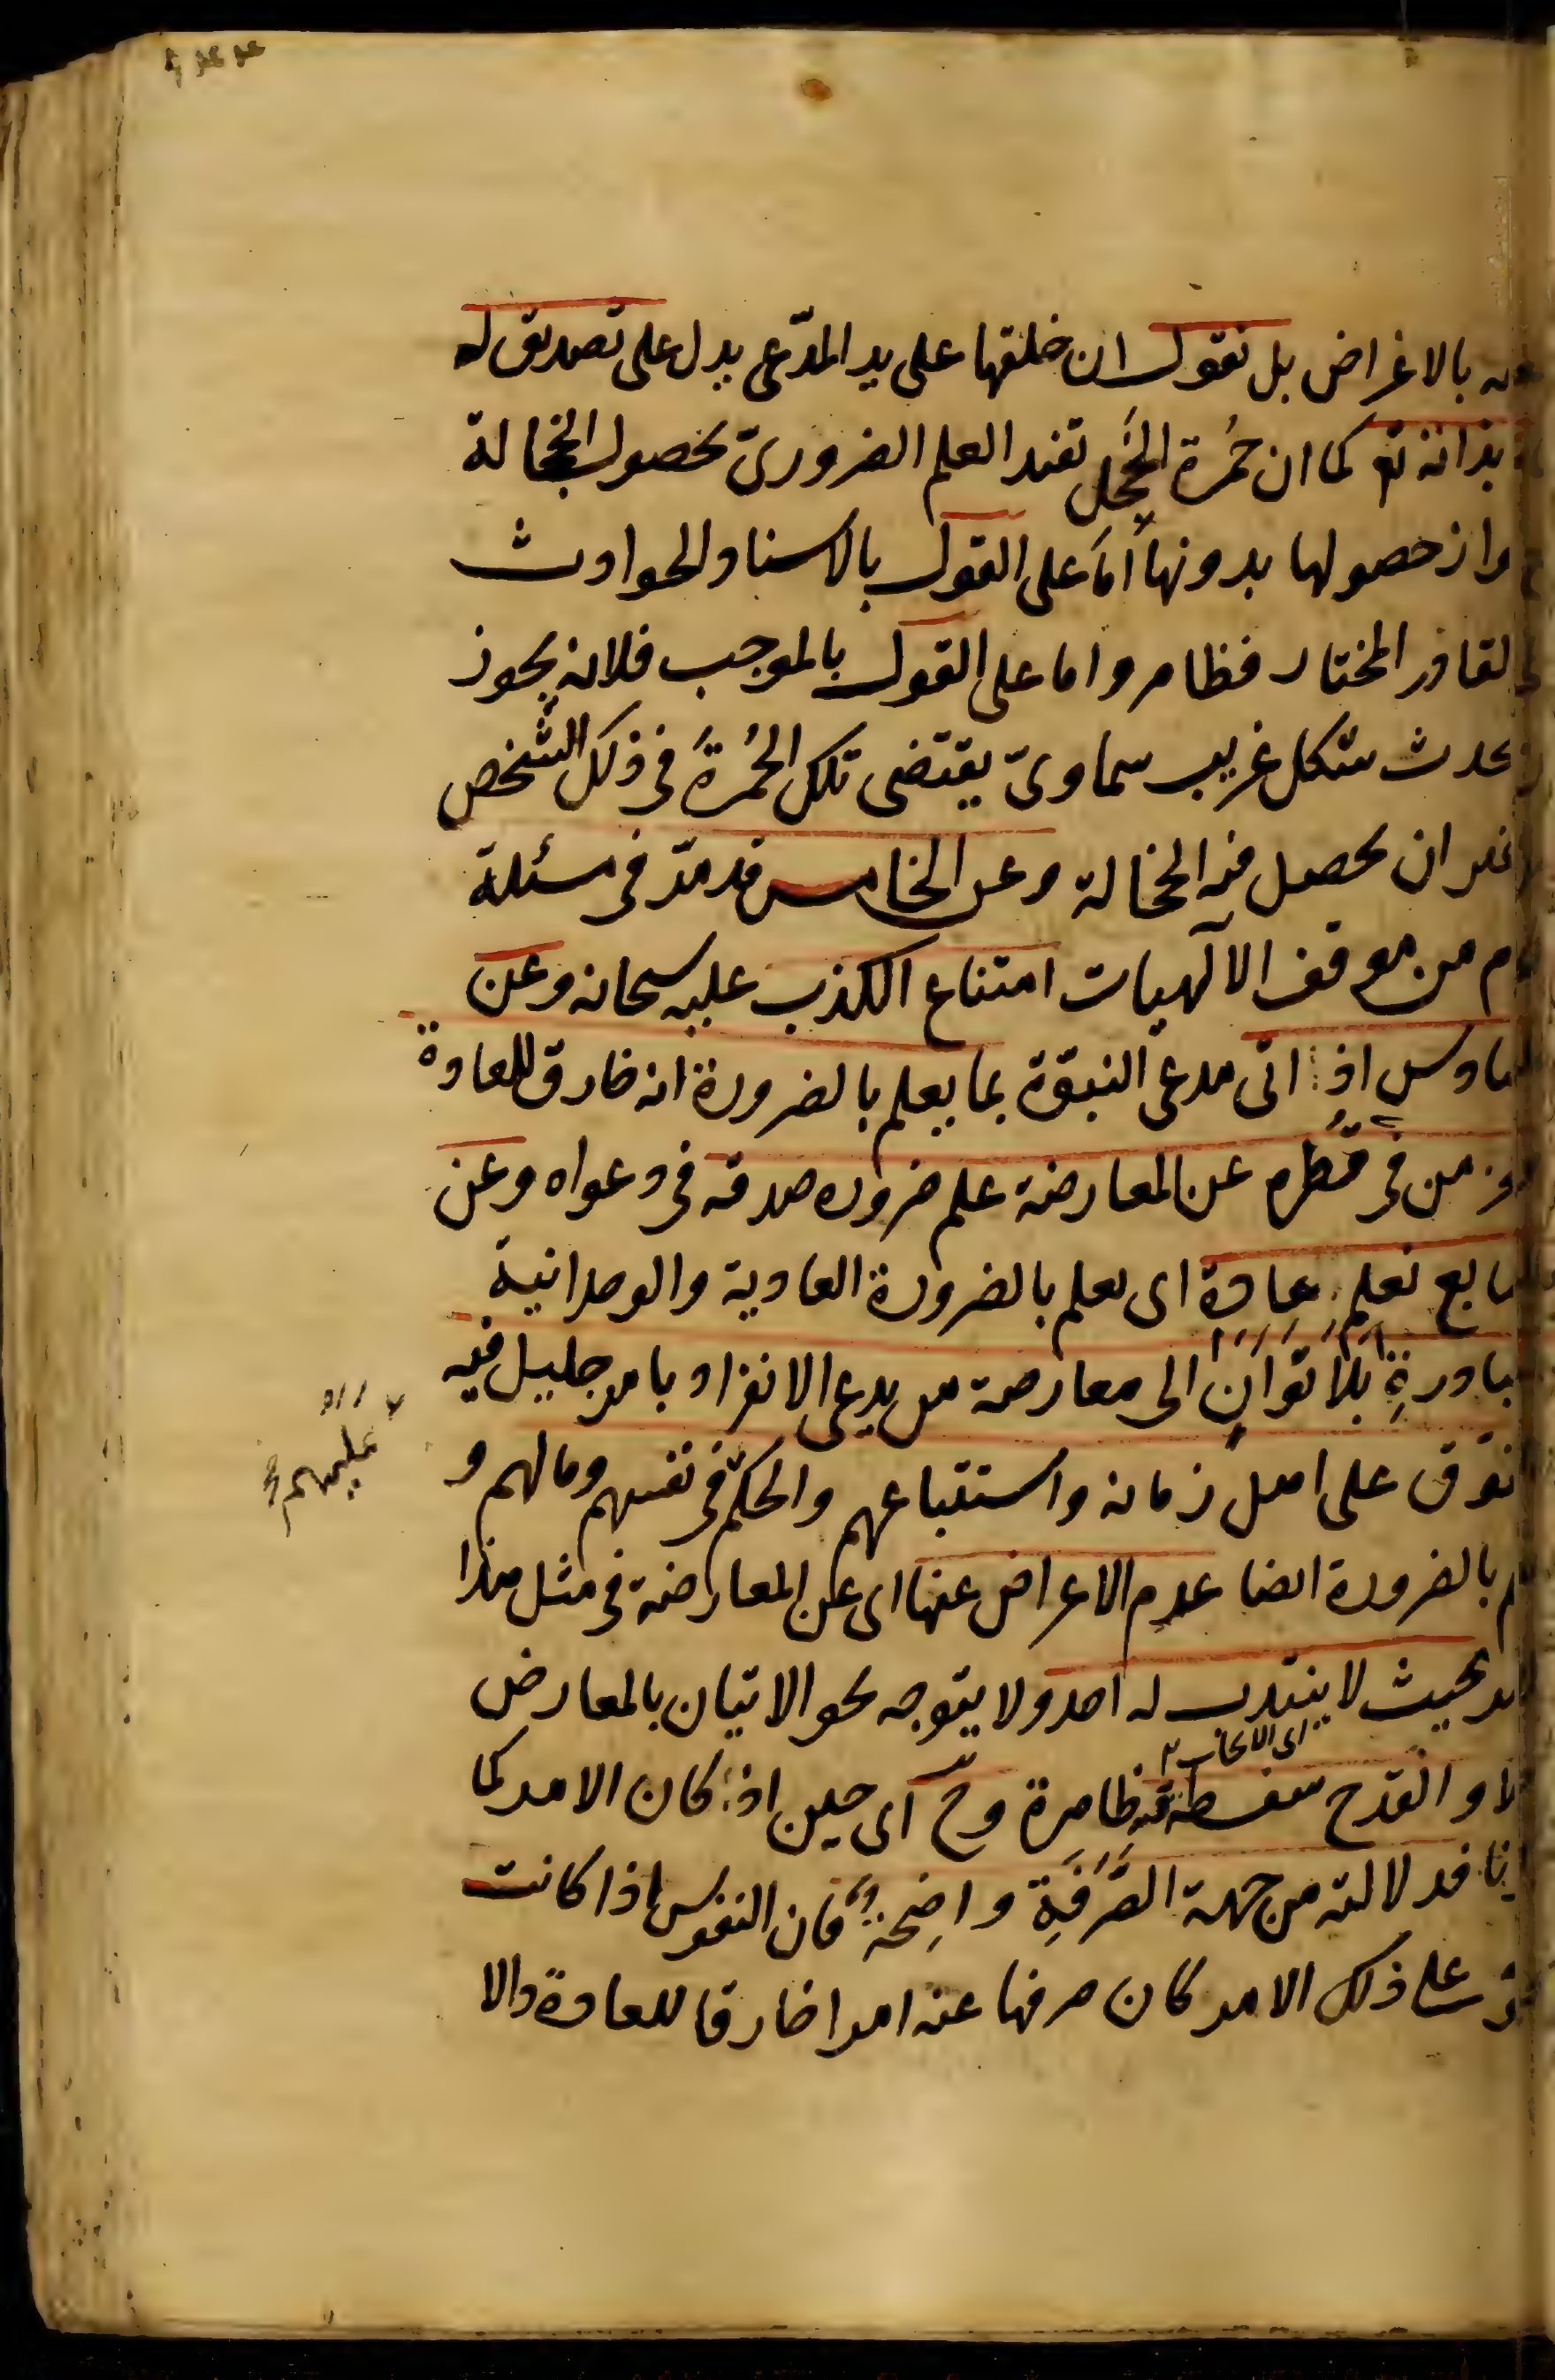 بالاغراض بل نقول ان خلقها على يد المدّعى يدل على تصديق له
بذاته تع كما ان حُمرة الخَجِل تفيد العلم الضرورىّ بحصول الخجالة
واز حصولها بدونها اَمّا على القول باسناد الحوادث
لقادر المختار فظاهر واما على القول بالموجب فلانه يجوز
يحدث شكل غريب سماوىّ يقتضى تلك الحُمرَة فى ذلك الشخص
غير ان يحصل فيه الخجالة وعن الخامس قد مرّ فى مسئلة
م من موقف الآلهيات امتناع الكذب عليه سبحانه وعن
لسادس اذا اتى مدعى النبوّة بما يعلم بالضرورة انه خارق للعادة
عجز من فى قُطره عن المعارضة علم ضرورة صدقه فى دعواه وعن
سابع نعلم عادة اى يعلم بالضرورة العادية والوجدانية
بادرةِ بِلاَ تَوَانٍ الى معارضة من يدعى الانفراد بامر جليل فيه
تفوّق على اهل زمانه واستتباعهم والحكم فى نفسهم ومالهم و
عليهم
م بالضرورة ايضا عدم الاعراض عنها اى عن المعارضة فى مثل هذا
بحيث لا ينتدب له احد ولا يتوجه نحو الاتيان بالمعارض
لا والقدح فيه سفسطة ظاهرة وح آى حين اذا كان الامر كما
نا فدلالته من جهة الصَّرْفَةِ واضِحة فان النفوس اذا كانت
على ذلك الامر كان صرفها عنه امرا خارقا للعادة والا